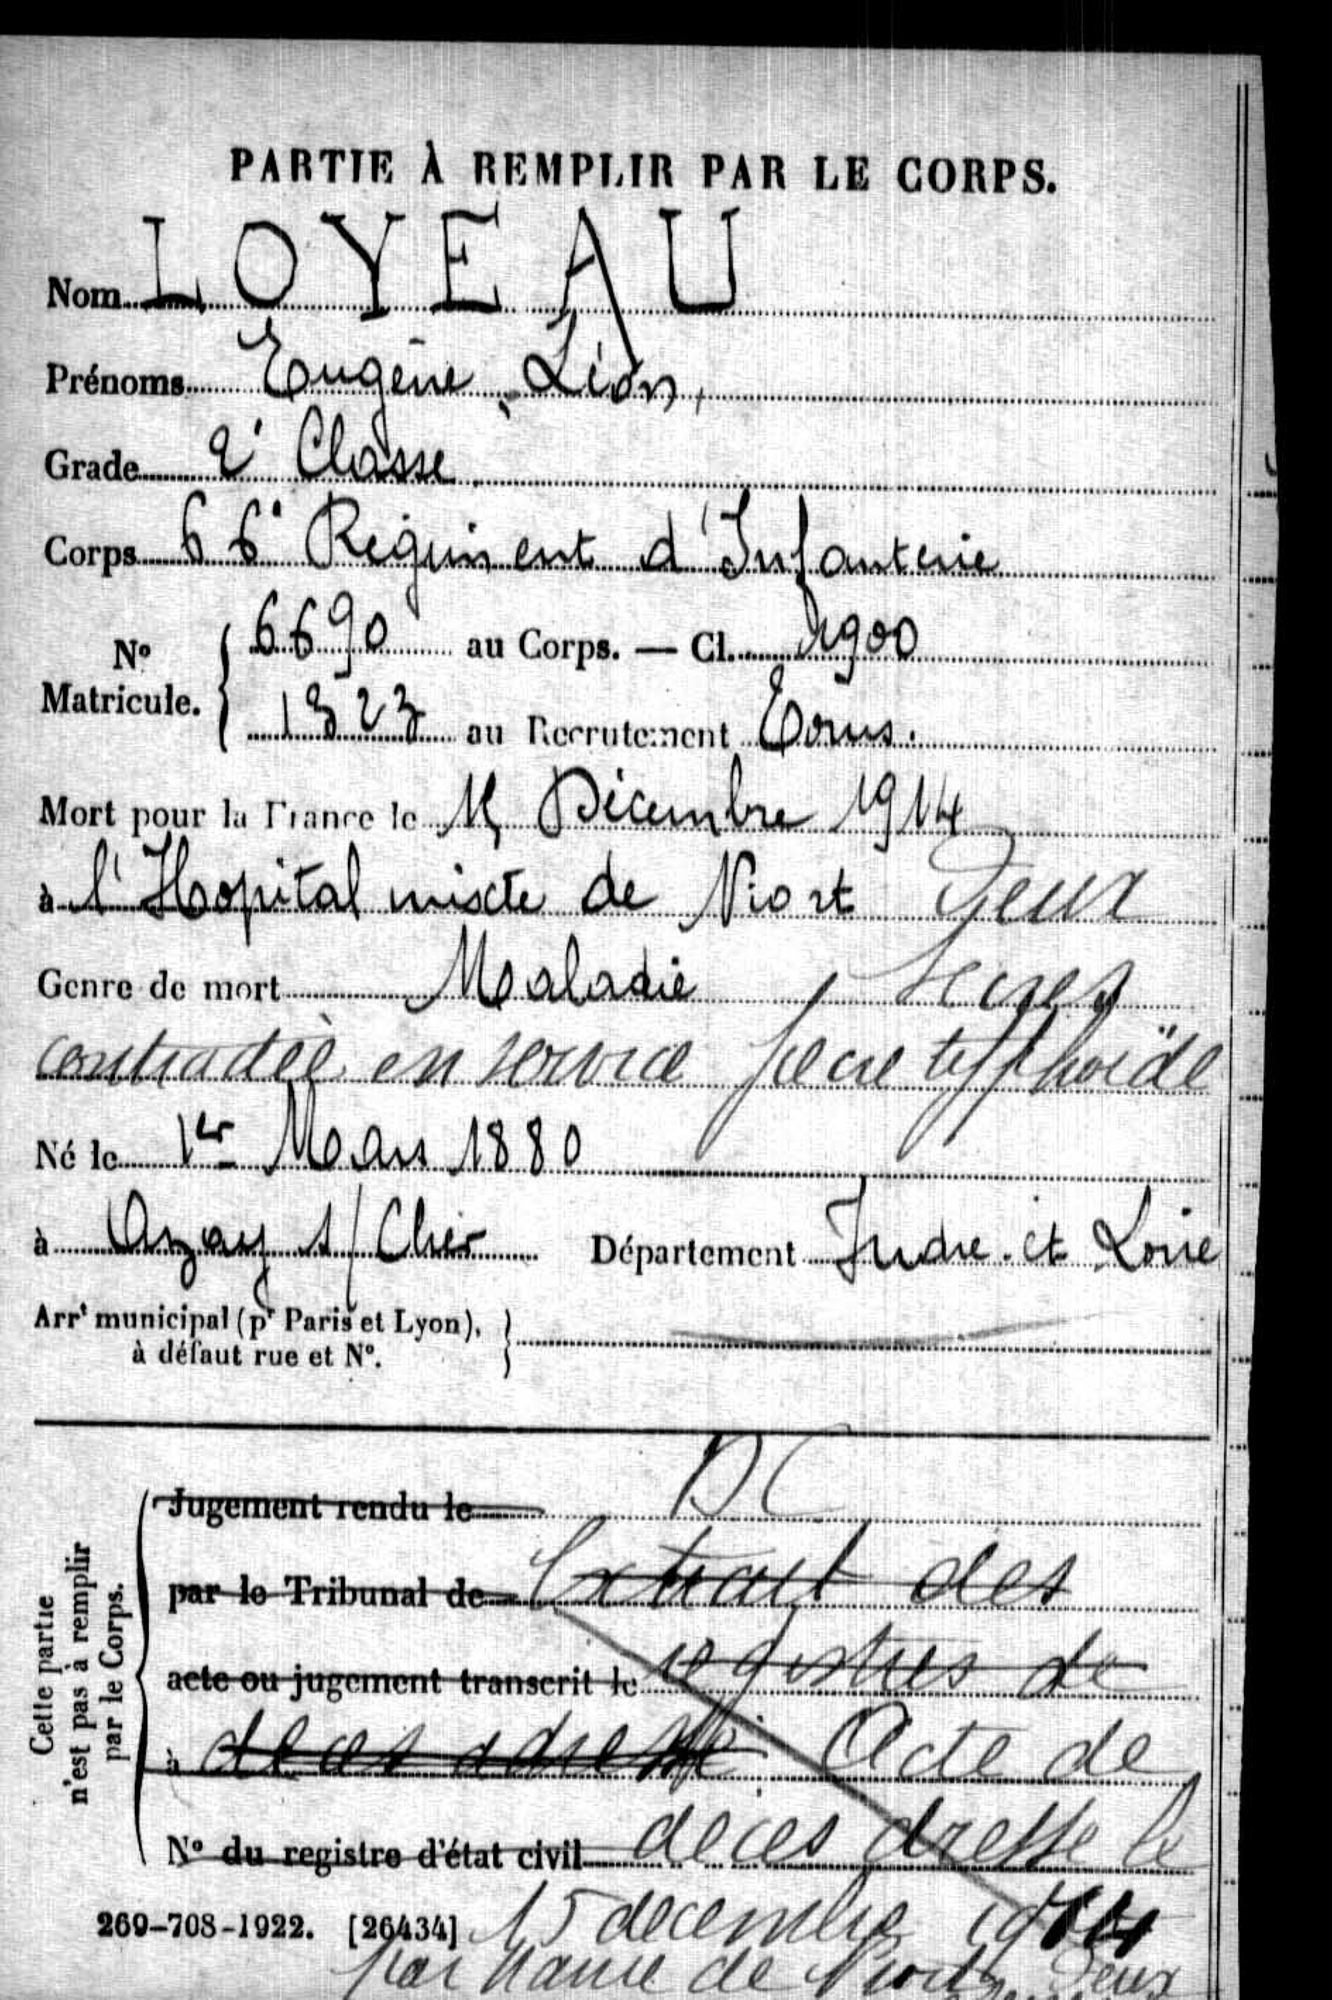 PARTIE À REMPLIR PAR LE CORPS.
Nom LOYEAU
Prénoms Eugène, Léon,
Grade 2e Classe
Corps 66e Régiment d'Infanterie
No Matricule. { 6690 au Corps. — Cl. 1900
1323 au Recrutement Tours.
Mort pour la France le Décembre 1914
à l'Hopital mixte de Niort Deux
Genre de mort Maladie Sèvres
contractée en service fièvre typhoïde
Né le 1er Mars 1880
à Azay s/ Cher Département Indre-et Loire
Arrt municipal (pr Paris et Lyon), à défaut rue et No. }
Cette partie n'est pas à remplir par le Corps.
Jugement rendu le DC
par le Tribunal de Extrait des
acte ou jugement transcrit le registres de
à décès adressé Acte de
No du registre d'état civil décès dressé le
269-708-1922. [26434] 15 décembre 1914
par Mairie de Niort Deux